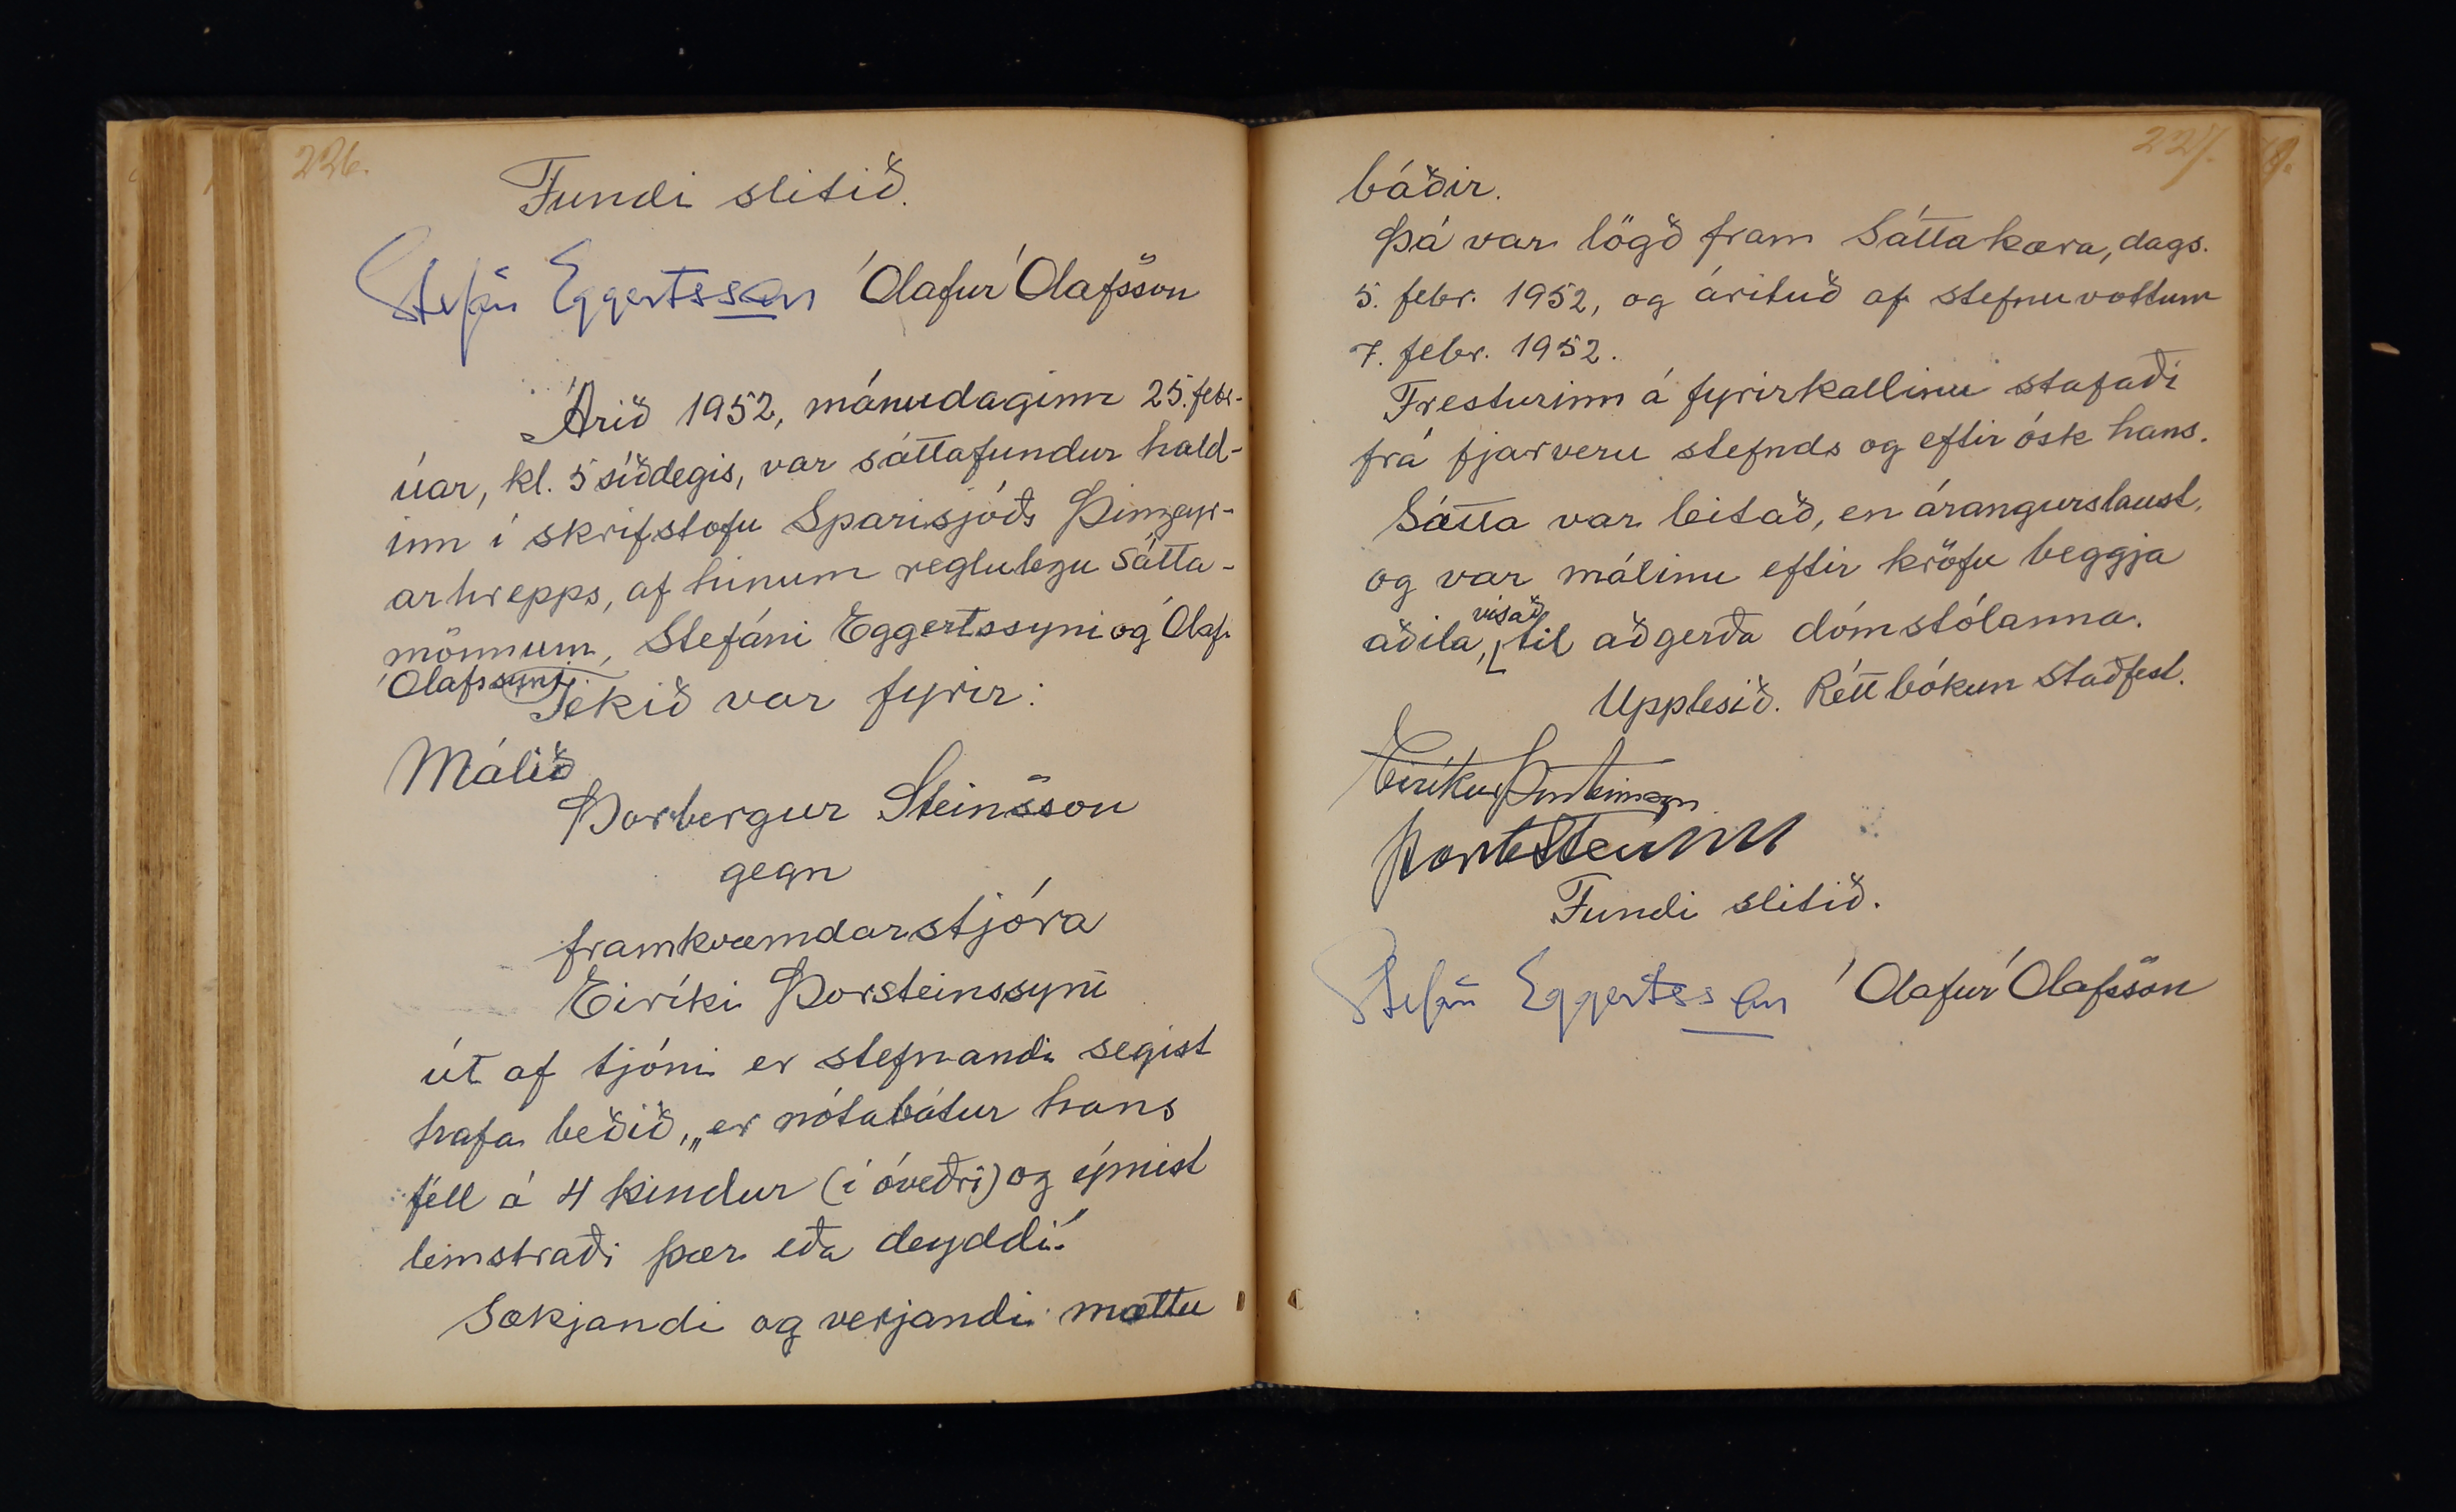 226.
Fundi slitið.
Stefán Eggertsson Ólafur Ólafsson
Árið 1952, mánudaginn 25. febr-
úar, kl. 5 síðdegis, var sáttafundur hald-
inn í skrifstofu Sparisjóðs Þingeyr-
arhrepps, af hinum reglulegu sátta-
mönnum, Stefáni Eggertssyni og Ólafi
Ólafssyni.
Tekið var fyrir:
Málið
Þorbergur Steinsson
gegn
framkvæmdarstjóra
Eiríki Þorsteinssyni
út af tjóni er stefnandi segist
hafa beðið, „er nótabátur hans
féll á 4 kindur (í óveðri) og ýmist
lemstraði þær eða deyddi."
Sækjandi og verjandi mættu
227.
báðir.
Þá var lögð fram Sáttakæra, dags.
5. febr. 1952, og árituð af stefnuvottum
7. febr. 1952.
Fresturinn á fyrirkallinu stafaði
frá fjarveru stefnds og eftir ósk hans.
Sátta var leitað, en árangurslaust,
og var málinu eftir kröfu beggja
aðila, vísað til aðgerða dómstólanna.
Upplesið. Rétt bókun staðfest.
Eiríkur Þorsteinsson
Þorb Steinsson
Fundi slitið.
Stefán Eggertsson Ólafur Ólafsson